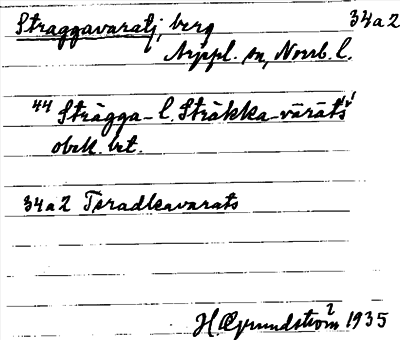 Straggavaratj, berg 34a2
Arjepl. sn, Norrb. l.
44 Strägga- l. Sträkka-vārāts
obek. brt.
34a2 Tsradkavarats
H Grundström 1935